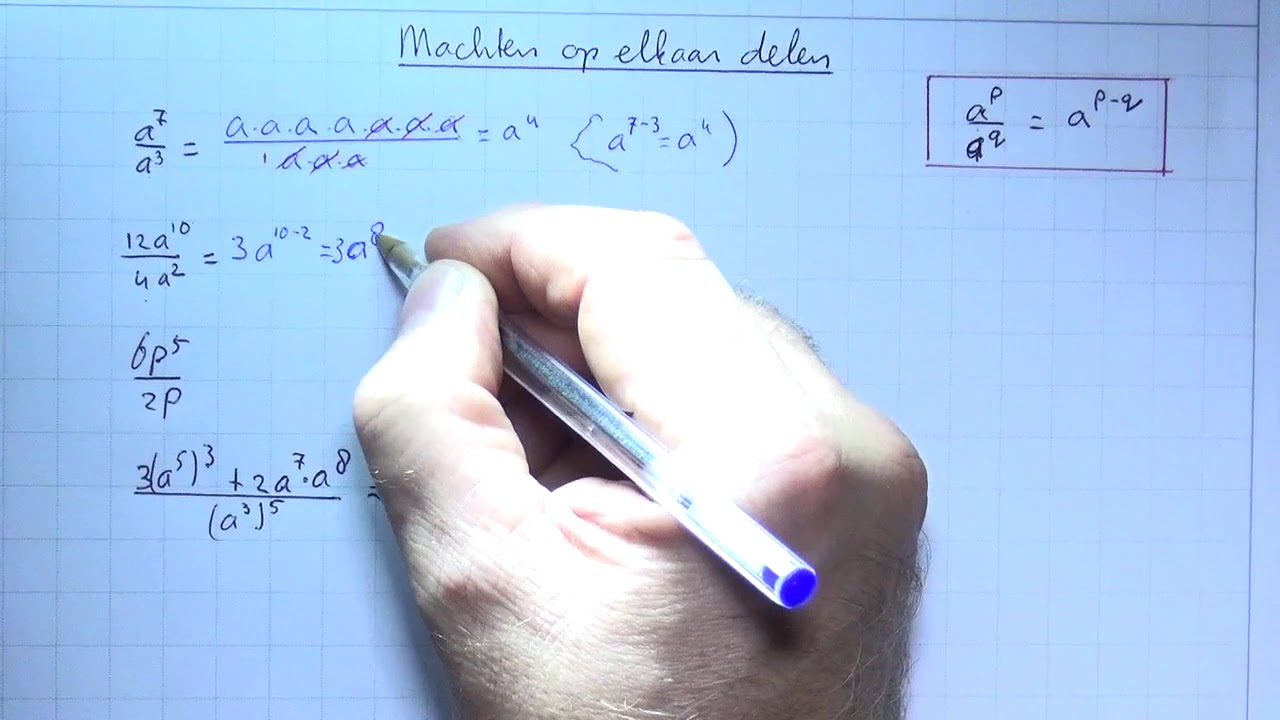 Machten op elkaar delen
a^7/a^3 = a.a.a.a.a.a.a/1 a.a.a = a^4 (a^{7-3} = a^4)
a^p/a^q = a^{p-q}
12a^{10}/4a^2 = 3a^{10-2} = 3a^8
6p^5/2p
3(a^5)^3 + 2a^7.a^8/(a^3)^5 =